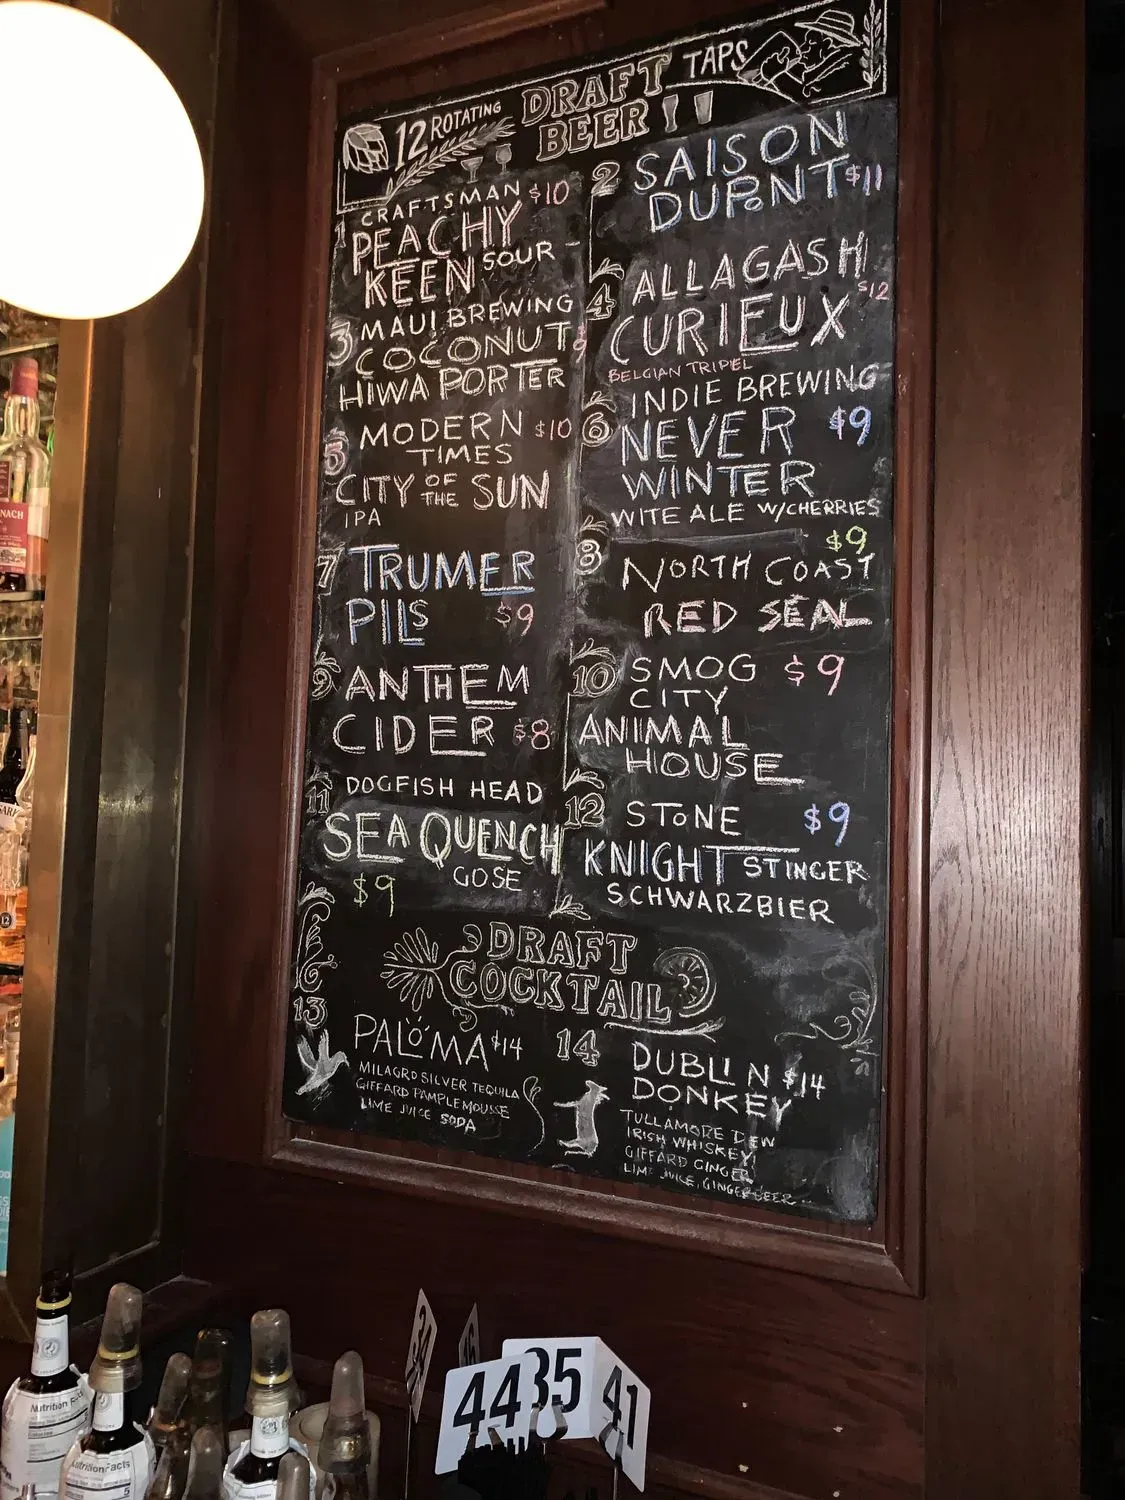 12 ROTATING DRAFT BEER TAPS
1 CRAFTSMAN $10
PEACHY
KEEN SOUR
2 SAISON
DUPONT $11
3 MAUI BREWING
COCONUT $9
HIWA PORTER
4 ALLAGASH
CURIEUX $12
BELGIAN TRIPEL
5 MODERN $10
TIMES
CITY OF THE SUN
IPA
6 INDIE BREWING
NEVER $9
WINTER
WITE ALE W/CHERRIES
7 TRUMER
PILS $9
8 $9
NORTH COAST
RED SEAL
9 ANTHEM
CIDER $8
10 SMOG $9
CITY
ANIMAL
HOUSE
11 DOGFISH HEAD
SEA QUENCH
GOSE
$9
12 STONE $9
KNIGHT STINGER
SCHWARZBIER
DRAFT
COCKTAIL
13
PALOMA $14
MILAGRO SILVER TEQUILA
GIFFARD PAMPLEMOUSSE
LIME JUICE SODA
14
DUBLIN $14
DONKEY
TULLAMORE DEW
IRISH WHISKEY,
GIFFARD GINGER
LIME JUICE, GINGER BEER
44
35
41
Nutrition Facts
Nutrition Facts
5
12